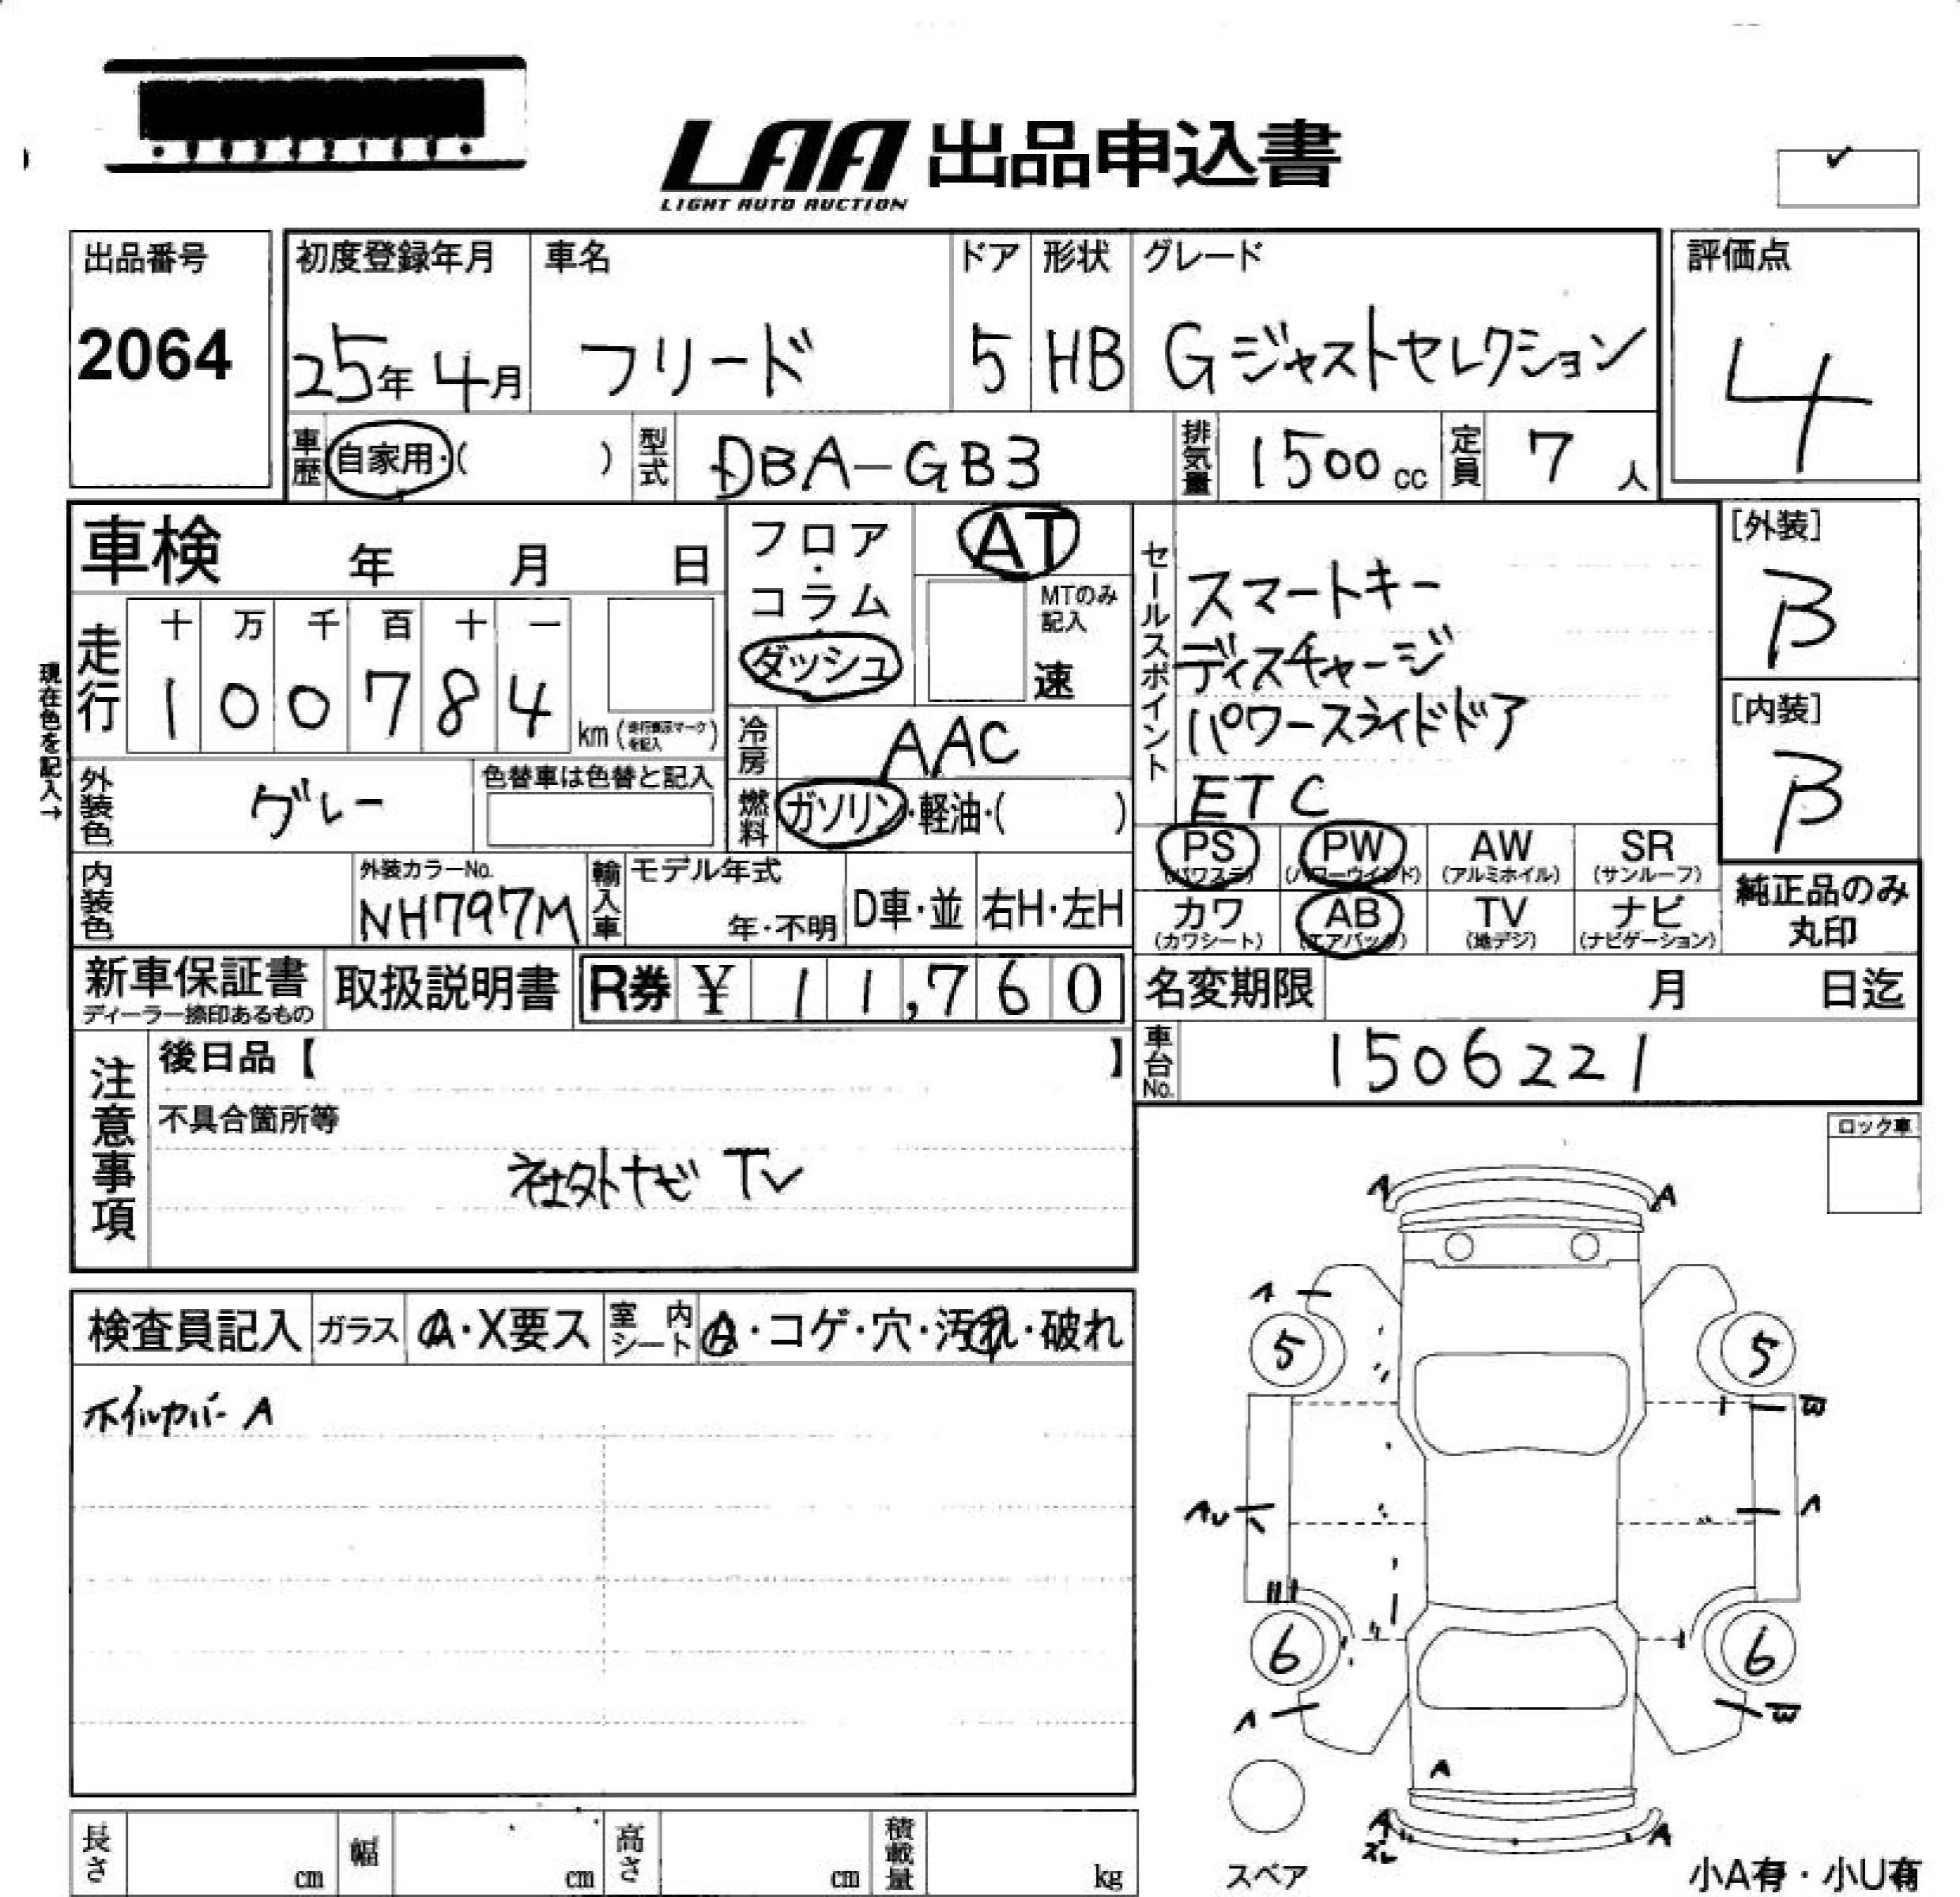 LAA 出品申込書
LIGHT AUTO AUCTION
出品番号
2064
初度登録年月 車名 ドア 形状 グレード
25年 4月 フリード 5 HB Gジャストセレクション
評価点
4
車歴 自家用・( ) 型式 DBA-GB3 排気量 1500cc 定員 7人
車検 年 月 日
フロア・コラム・ダッシュ
AT
MTのみ記入
速
セールスポイント
スマートキー
ディスチャージ
パワースライドドア
ETC
[外装]
B
[内装]
B
現在色を記入→
走行 十 万 千 百 十 一
1 0 0 7 8 4 km
冷房 AAC
外装色 グレー 色替車は色替と記入
燃料 ガソリン・軽油・( )
PS AW PW SR
(パワステ) (パワーウインド) (アルミホイル) (サンルーフ)
カワ AB TV ナビ
(カワシート) (エアバック) (地デジ) (ナビゲーション)
純正品のみ
丸印
内装色 外装カラーNo. NH797M 輸入車 モデル年式 年・不明 D車・並 右H・左H
新車保証書
ディーラー捺印あるもの
取扱説明書 R券 ¥ 11,760
名変期限 月 日迄
車台No. 1506221
注意事項
後日品【 】
不具合箇所等
社外ナビ TV
ロック車
検査員記入 ガラス A・X要ス 室内シート A・コゲ・穴・汚れ・破れ
ホイルカバー A
A A
A
5 5
W
AU A
6 6
A W
A
A A
ズレ
スペア
小A有・小U有
長さ cm 幅 cm 高さ cm 積載量 kg